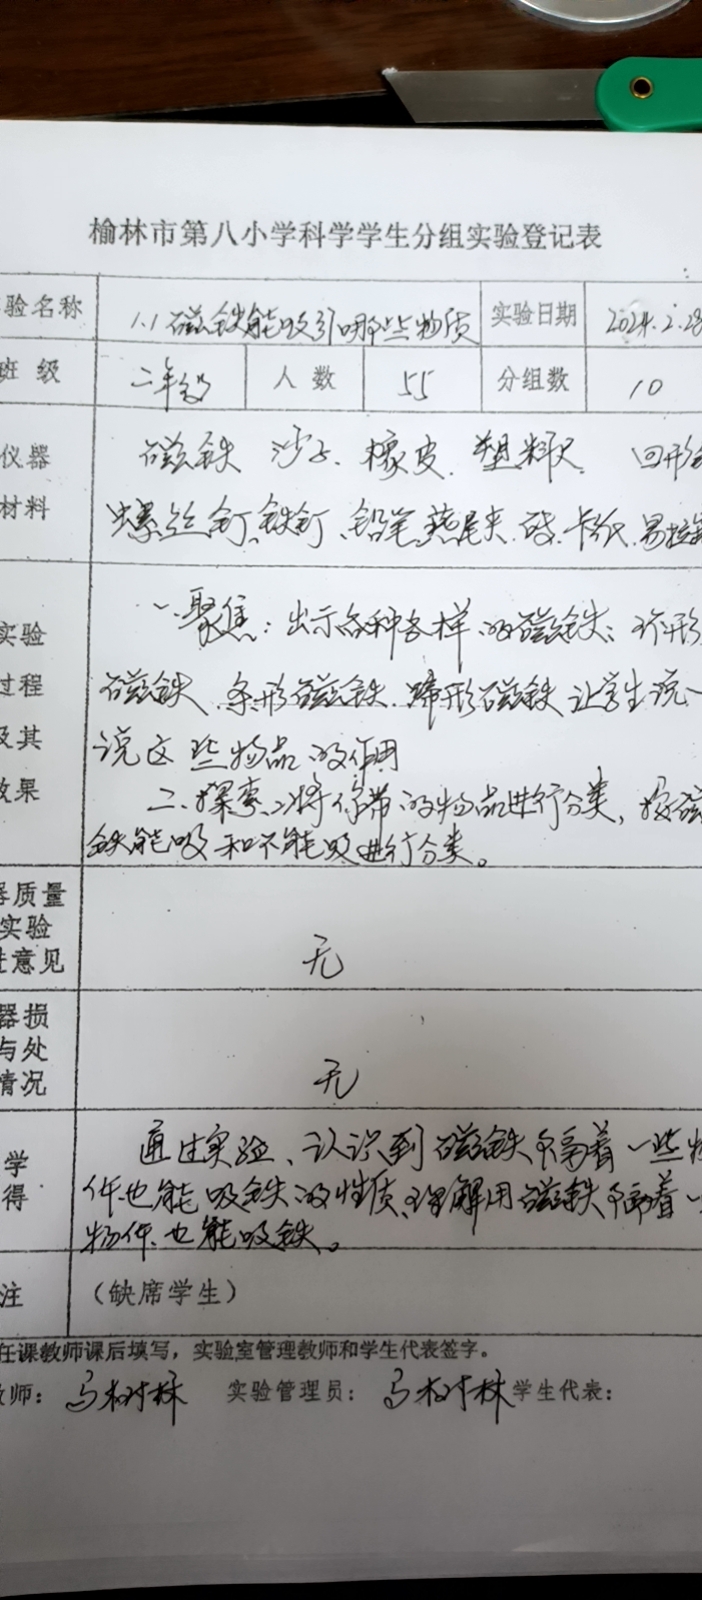 榆林市第八小学科学学生分组实验登记表
验名称 1.1磁铁能吸引哪些物质 实验日期 2024.2.28
班 级 二年级 人 数 55 分组数 10
仪器 磁铁 沙子、橡皮、塑料尺 回形
材料 螺丝钉、铁钉、铅笔、燕尾夹、砖、卡纸、易拉
一、聚焦:出示各种各样的磁铁:环形
实验
过程 磁铁、条形磁铁、蹄形磁铁让学生说一
及其 说这些物品的作用
效果 二、探索:将你带的物品进行分类,按磁
铁能吸和不能吸进行分类。
器质量
实验
进意见 无
器损
与处
情况 无
学 通过实验、认识到磁铁隔着一些物
得 件也能吸铁的性质、理解用磁铁隔着一
物件也能吸铁。
注 (缺席学生)
任课教师课后填写,实验室管理教师和学生代表签字。
教师:马树林 实验管理员:马树林 学生代表: